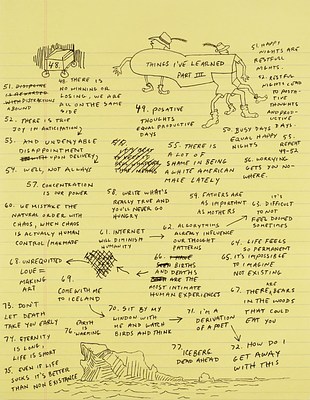 THINGS I'VE LEARNED
PART III.
48. THERE IS
NO WINNING OR
LOSING, WE ARE
ALL ON THE SAME
SIDE
49. POSATIVE
THOUGHTS
EQUAL PRODUCTIVE
DAYS
50. BUSY DAYS DAYS.
EQUAL HAPPY
51. HAPPY
NIGHTS ARE
RESTFULL
NIGHTS.
52. RESTFUL
NIGHTS LEAD
TO POSATI-
TIVE
THOUGHTS
AND PROD-
UCTIVE
53.
REPEAT
51.
DISTRACTIONS
ABOUND
52. THERE IS TRUE
JOY IN ANTICIPATION,
53. AND UNDENYABLE
DISAPPOINTMENT
UPON DELIVERY
54. WELL, NOT ALWAYS
55. THERE IS
A LOT OF
SHAME IN BEING
A WHITE AMERICAN
MALE LATELY
56. WORRYING
GETS YOU NO-
WHERE.
57. CONCENTRATION
IS OUR POWER
58. WRITE WHAT'S
REALLY TRUE AND
YOU'LL NEVER GO
HUNGRY
59. FATHERS ARE
AS IMPORTANT
AS MOTHERS
60. WE MISTAKE THE
NATURAL ORDER WITH
CHAOS, WHEN CHAOS
IS ACTUALLY HUMAN
CONTROL
61. INTERNET
WILL DIMINISH
HUMANITY
62. ALGORYTHMS
ALREADY INFLUENCE
OUR THOUGHT
PATTERNS
63. IT'S
DIFFICULT
TO NOT
FEEL DOOMED
SOMETIMES
64. LIFE FEELS
SO PERMANENT
65. IT'S IMPOSSIBLE
TO IMAGINE
NOT EXISTING
66.
BIRTHS
AND DEATHS
ARE THE
MOST INTIMATE
HUMAN EXPERIENCES
67. THERE
ARE BEARS
IN THE WOODS
THAT COULD
EAT YOU
68. UNREQUITED
LOVE =
MAKING
ART
69.
COME WITH ME
TO ICELAND
70. SIT BY MY
WINDOW WITH
ME AND WATCH
BIRDS AND THINK
71. I'M A
DERIVATION
OF A POET
72. HOW DO I
GET AWAY
WITH THIS
73. DON'T
LET DEATH
TAKE YOU EARLY
74. ETERNITY
IS LONG,
LIFE IS SHORT
75. EVEN IF LIFE
SUCKS IT'S BETTER
THAN NON EXISTANCE
76.
EARTH
IS
WARMING
77.
ICEBERG
DEAD AHEAD